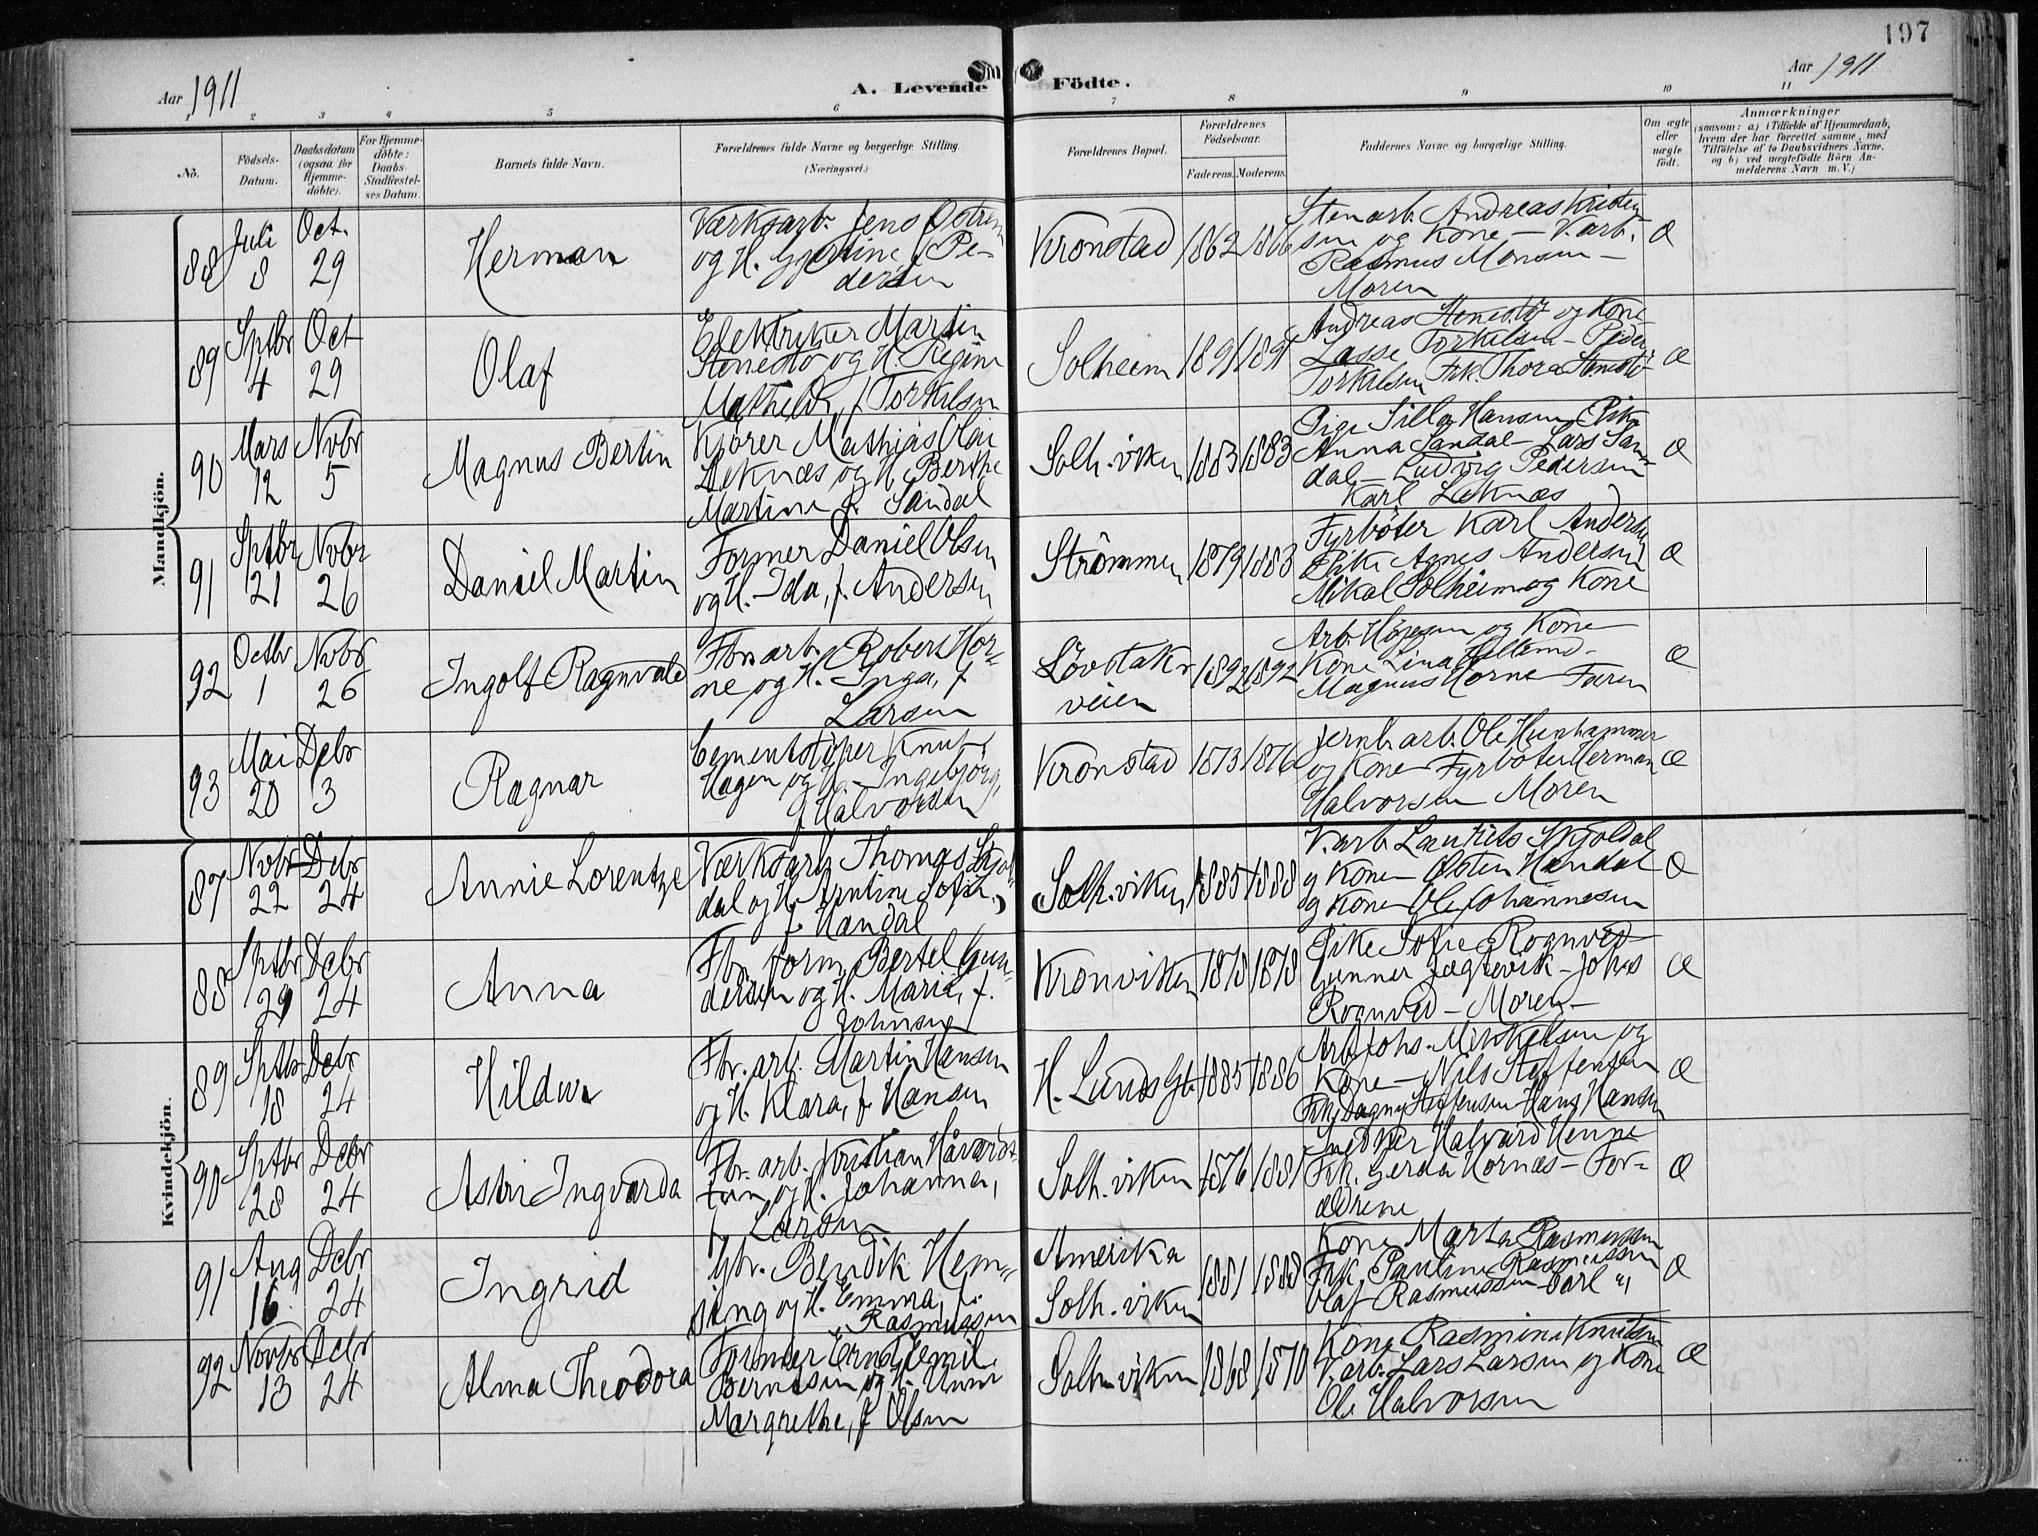 197
Aar 1911
A. Levende Födte.
Aar 1911
1 2 3 4 5 6 7 8 9 10 11
No.
Födsels-Datum.
Daabsdatum (ogsaa for Hjemme-döbte).
For Hjemme-döbte: Daabs-Stadfæstel-ses Datum.
Barnets fulde Navn.
Forældrenes fulde Navne og borgerlige Stilling.
(Næringsvei.)
Forældrenes Bopæl.
Forældrenes Födselsaar.
Faderens. Moderens.
Faddernes Navne og borgerlige Stilling.
Om ægte eller uægte födt.
Anmærkninger
(saasom: a) i Tilfælde af Hjemmedaab,
hvem der har forrettet samme, med
Tilföielse af to Daabsvidners Navne,
og b) ved uægtefödte Börn An-
melderens Navn m. V.)
Mandkjön.
88 Juli 8 Oct. 29 Herman
Værksarb. Jens Ostrem
og H. Gjertine f. Pe-
dersen
Kronstad 1862 1866
Stenarb. Andreas Kristen-
sen og Kone — V.arb.
Rasmus Monsen —
Moren
Æ
89 Sptbr 4 Oct 29 Olaf
Elektriker Martin
Stenestö og H. Regine
Mathilde, f Torkilsen
Solheim 1891 1891
Andreas Stenestö og Kone
Lasse Torkilsen — Peder
Torkilsen Frk. Thora Stenestö
Æ
90 Mars 12 Novbr 5 Magnus Bertin
Kjörer Mathias Olai
Leknæs og H. Berthe
Martine f. Sandal
Solh.viken 1883 1883
Pige Silla Hansen Pike
Anna Sandal — Lars San-
dal — Ludvig Pedersen
Karl Leknæs
Æ
91 Sptbr 21 Novbr 26 Daniel Martin
Former Daniel Olsen
og H. Ida, f. Andersen
Strömmen 1879 1883
Fyrböter Karl Andersen
Pike Agnes Andersen
Mikal Solheim og Kone
Æ
92 Octbr 1 Novbr 26 Ingolf Ragnvald
Fbr.arb. Robert Hor-
ne og H. Inga, f
Larsen
Lövstaks
veien 1892 1892
Arb. og Kone
Kone Lina
Magnus Horne Faren
Æ
93 Mai 20 Debr 3 Ragnar
Cementstöper Knut
Hagen og H. Ingebjörg,
f Halvorsen
Kronstad 1873 1876
Jernb.arb. Ole Hunhammer
og Kone Fyrböter Herman
Halvorsen Moren
Æ
Kvindekjön.
87 Novbr 22 Debr 24 Annie Lorentze
Værksarb. Thomas Skjol-
dal og H. Arntine Sofie,
f. Handal
Solh.viken 1885 1888
V.arb. Lauritz Skjoldal
og Kone Östen Handal
og Kone Ole Johannesen
Æ
88 Sptbr 29 Debr 24 Anna
Fbr. form. Bertel Gun-
dersen og H. Marie, f.
Johnsen
Kronviken 1878 1878
Pike Sofie Rognved
Gunner Jægtevik — Johs
Rognved — Moren —
Æ
89 Sptbr 18 Debr 24 Hildur
Fbr. arb. Martin Hansen
og H. Klara, f Hansen
H. Lunds Gt. 1885 1886
Arb. Johs. Mikkelsen og
Kone — Nils Steffensen
Frk. Dagny Steffensen Hans Hansen
Æ
90 Sptbr 28 Debr 24 Astri Ingvarda
Fbr. arb. Kristian Håvards-
tun og H. Johanna,
f Larsen
Solh.viken 1876 1881
Snedker Halvard Henne
Frk. Gerda Hornæs — For-
ældrene
Æ
91 Aug 16 Debr 24 Ingrid
Gbr. Bendik Hem-
sing og H. Emma, f.
Rasmussen
Amerika
Solh.viken 1881 1888
Kone Marta Rasmussen
Frk. Pauline Rasmussen
Olaf Rasmussen — Carl "
Æ
92 Novbr 13 Debr 24 Alma Theodora
Former Ernst Emil
Berntsen og H. Unni
Margrethe, f Olsen
Solh.viken 1868 1870
Kone Rasmine Knutsen
V.arb. Lars Larsen og Kone
Ole Halvorsen
Æ